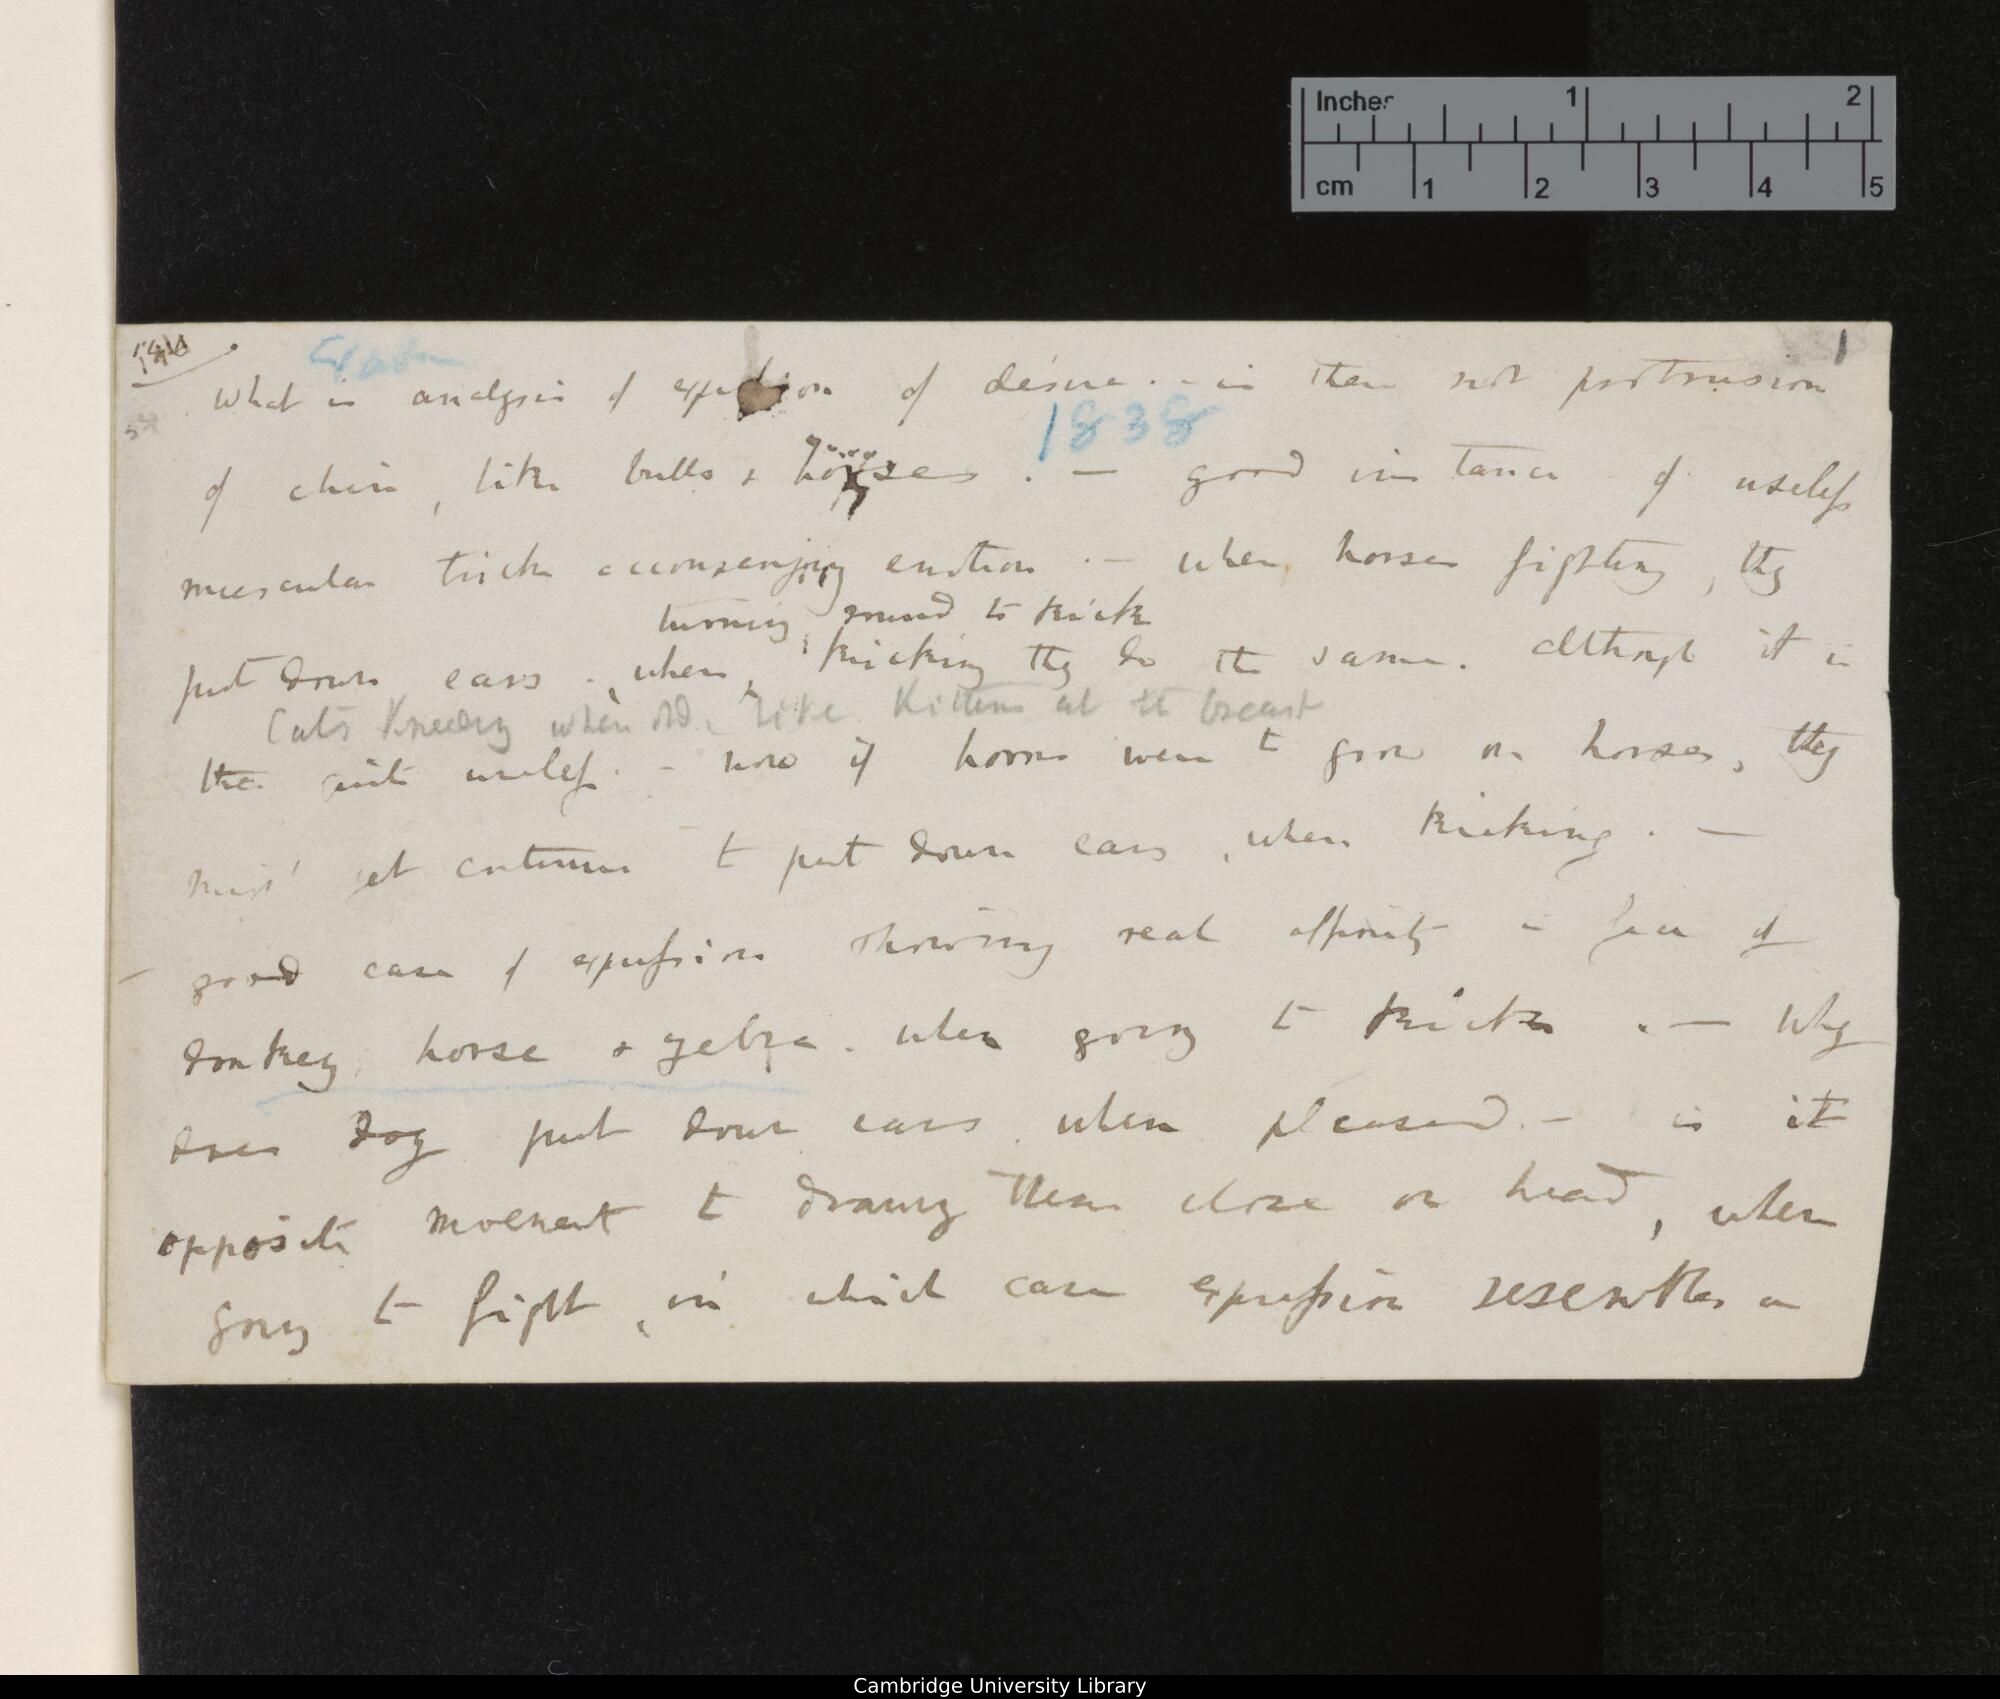 Inches 1 2
cm 1 2 3 4 5
1
What is analysis of expression of desire. - is there not protrusion
1838
of chin, like bulls & horses. — good instance of useless
muscular trick accompanying emotion. — when horses fighting, they
turning round to kick
put down ears, when kicking they do the same. although it is
Cats Kneeding when old, like Kittens at the breast
then quite useless. - now if horns were to grow on horses, they
must yet continue to put down ears, when kicking. —
— good case of expression showing real affinity in face of
donkey, horse & zebra. when going to kick. — Why
does dog put down ears, when pleased. — is it
opposite movement to drawing them close on head, when
going to fight, in which case expression resembles a
Cambridge University Library